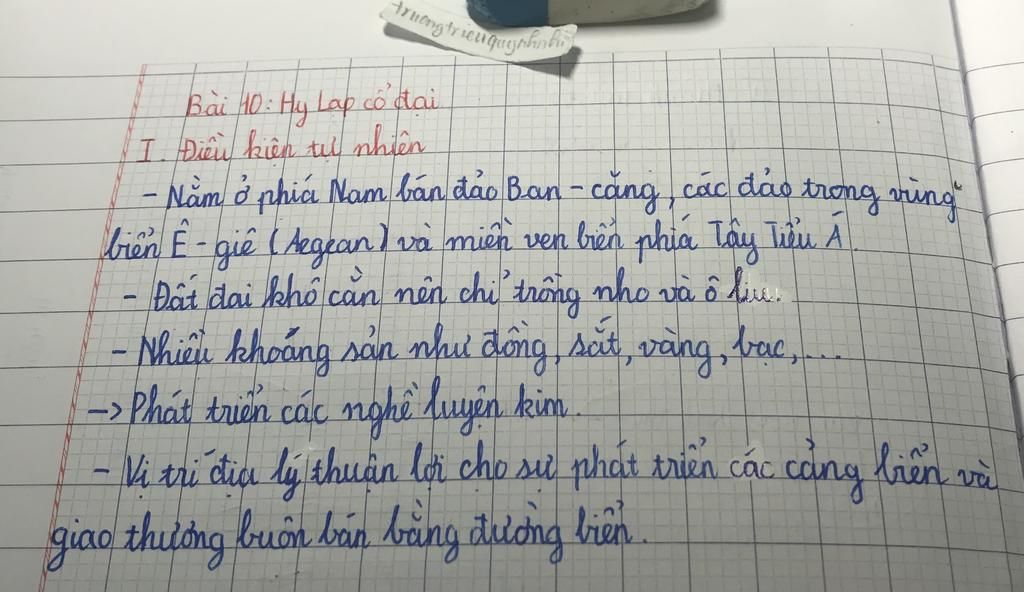 truongtrieuquynhnhi
Bài 10: Hy Lạp cổ đại
I. Điều kiện tự nhiên
- Nằm ở phía Nam bán đảo Ban-căng, các đảo trong vùng
biển Ê-giê (Aegean) và miền ven biển phía Tây Tiểu Á.
- Đất đai khô cằn nên chỉ trồng nho và ô liu.
- Nhiều khoáng sản như đồng, sắt, vàng, bạc,...
-> Phát triển các nghề luyện kim.
- Vị trí địa lý thuận lợi cho sự phát triển các cảng biển và
giao thương buôn bán bằng đường biển.